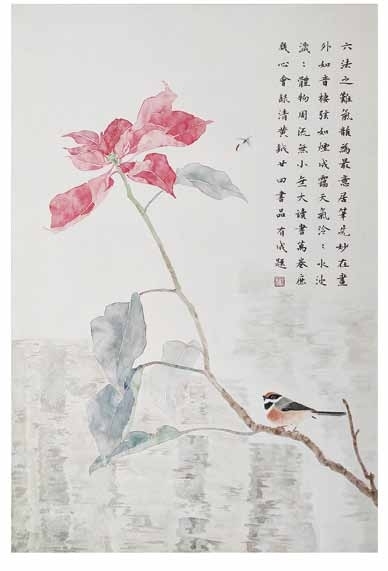 六法之難氣韻為最意居筆先妙在畫
外如音棲弦如煙成靄天氣泠〻水波
濊〻體物周流無小無大讀書萬卷庶
幾心會錄清黃鉞廿四畫品有成題